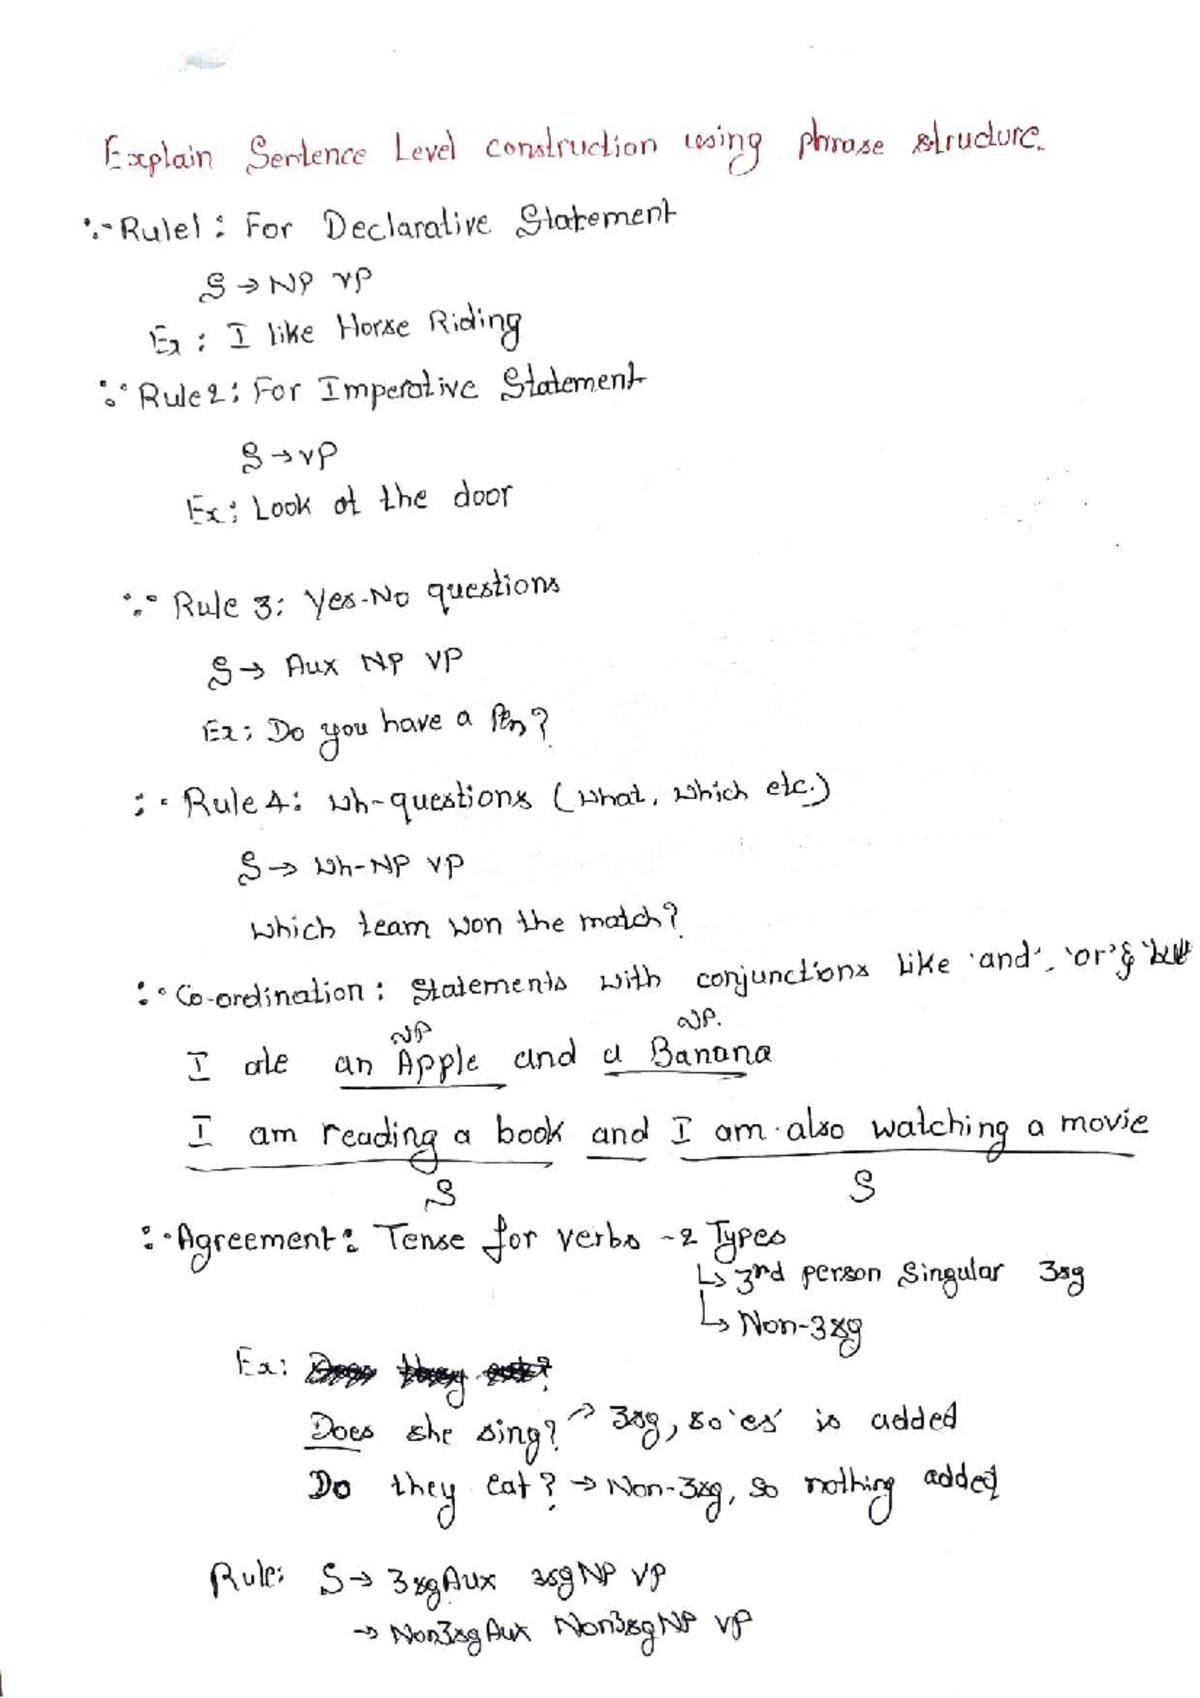 Explain Sentence Level construction using phrase structure.
Rule1: For Declarative Statement
S → NP VP
Ex: I like Horse Riding
Rule2: For Imperative Statement
S → VP
Ex: Look at the door
Rule 3: Yes-No questions
S → Aux NP VP
Ex: Do you have a Pen?
Rule 4: Wh-questions (What, which etc.)
S → Wh-NP VP
Which team won the match?
Co-ordination: Statements with conjunctions like 'and', 'or' & 'but'
NP NP.
I ate an Apple and a Banana
I am reading a book and I am also watching a movie
S S
Agreement: Tense for verbs - 2 Types
↳ 3rd person Singular 3sg
↳ Non-3sg
Ex:
Does she sing? → 3sg, so 'es' is added
Do they eat? → Non-3sg, so nothing added
Rule: S → 3sgAux 3sgNP VP
→ Non3sgAux Non3sgNP VP